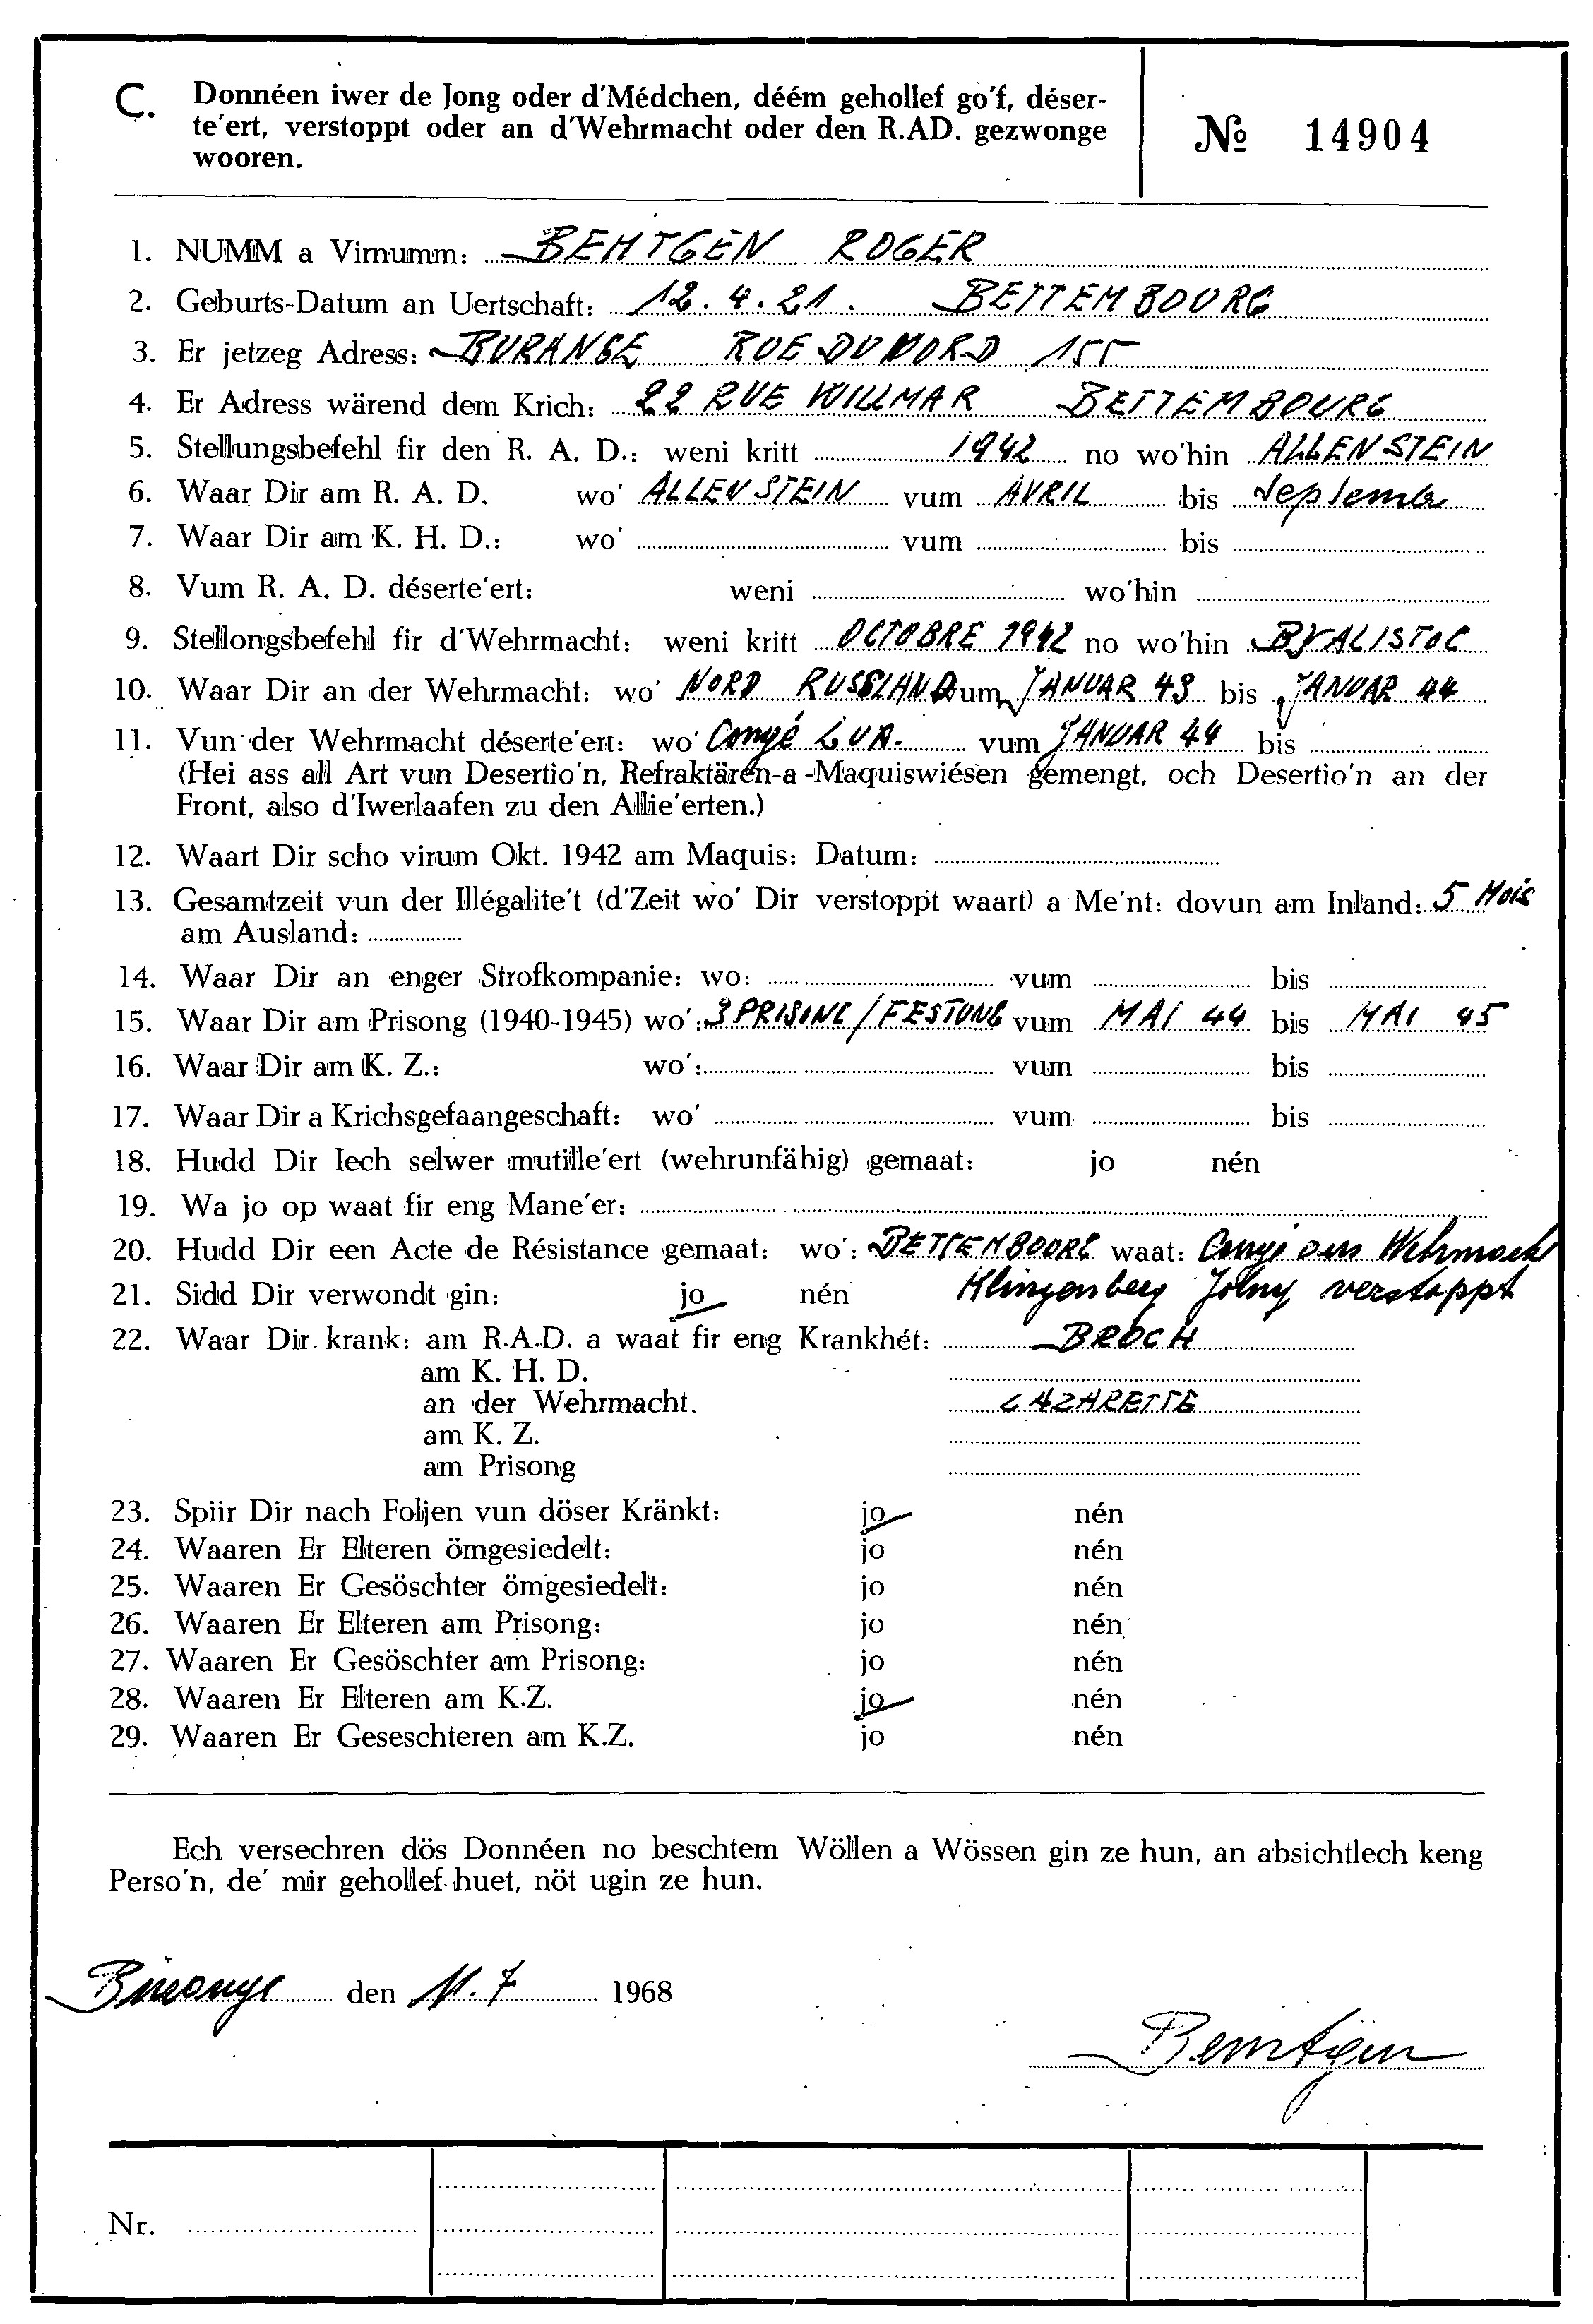 C. Donnéen iwer de Jong oder d'Médchen, déém gehollef go'f, déser-
te'ert, verstoppt oder an d'Wehrmacht oder den R.AD. gezwonge
wooren.
№ 14904
1. NUMM a Virnumm: BEMTGEN ROGER
2. Geburts-Datum an Uertschaft: 12.4.21. BETTEMBOURG
3. Er jetzeg Adress: BURANGE RUE DU NORD 155
4. Er Adress wärend dem Krich: 22 RUE WILLMAR BETTEMBOURG
5. Stellungsbefehl fir den R. A. D.: weni kritt 1942 no wo'hin ALLENSTEIN
6. Waar Dir am R. A. D. wo' ALLENSTEIN vum AVRIL bis Septembre
7. Waar Dir am K. H. D.: wo' vum bis
8. Vum R. A. D. déserte'ert: weni wo'hin
9. Stellongsbefehl fir d'Wehrmacht: weni kritt OCTOBRE 1942 no wo'hin BYALISTOC
10. Waar Dir an der Wehrmacht: wo' NORD RUSSLAND vum JANUAR 43 bis JANUAR 44
11. Vun der Wehrmacht déserte'ert: wo' Congé LUX. vum JANUAR 44 bis
(Hei ass all Art vun Desertio'n, Refraktären-a-Maquiswiésen gemengt, och Desertio'n an der
Front, also d'Iwerlaafen zu den Allie'erten.)
12. Waart Dir scho virum Okt. 1942 am Maquis: Datum:
13. Gesamtzeit vun der Illégalite't (d'Zeit wo' Dir verstoppt waart) a Me'nt: dovun am Inland: 5 Mois
am Ausland:
14. Waar Dir an enger Strofkompanie: wo: vum bis
15. Waar Dir am Prisong (1940-1945) wo': 3 PRISONG/FESTUNG vum MAI 44 bis MAI 45
16. Waar Dir am K. Z.: wo': vum bis
17. Waar Dir a Krichsgefaangeschaft: wo' vum bis
18. Hudd Dir Iech selwer mutille'ert (wehrunfähig) gemaat: jo nén
19. Wa jo op waat fir eng Mane'er:
20. Hudd Dir een Acte de Résistance gemaat: wo': BETTEMBOURG waat: Congé Wehrmacht
21. Sidd Dir verwondt gin: jo nén Klingenberg Johny verstoppt
22. Waar Dir krank: am R.A.D. a waat fir eng Krankhét: BROCH
am K. H. D.
an der Wehrmacht. LAZARETTE
am K. Z.
am Prisong
23. Spiir Dir nach Foljen vun döser Kränkt: jo nén
24. Waaren Er Elteren ömgesiedelt: jo nén
25. Waaren Er Gesöschter ömgesiedelt: jo nén
26. Waaren Er Elteren am Prisong: jo nén
27. Waaren Er Gesöschter am Prisong: jo nén
28. Waaren Er Elteren am K.Z. jo nén
29. Waaren Er Geseschteren am K.Z. jo nén
Ech versechren dös Donnéen no beschtem Wöllen a Wössen gin ze hun, an absichtlech keng
Perso'n, de' mir gehollef huet, nöt ugin ze hun.
Burange den 11.7 1968
Bemtgen
Nr.